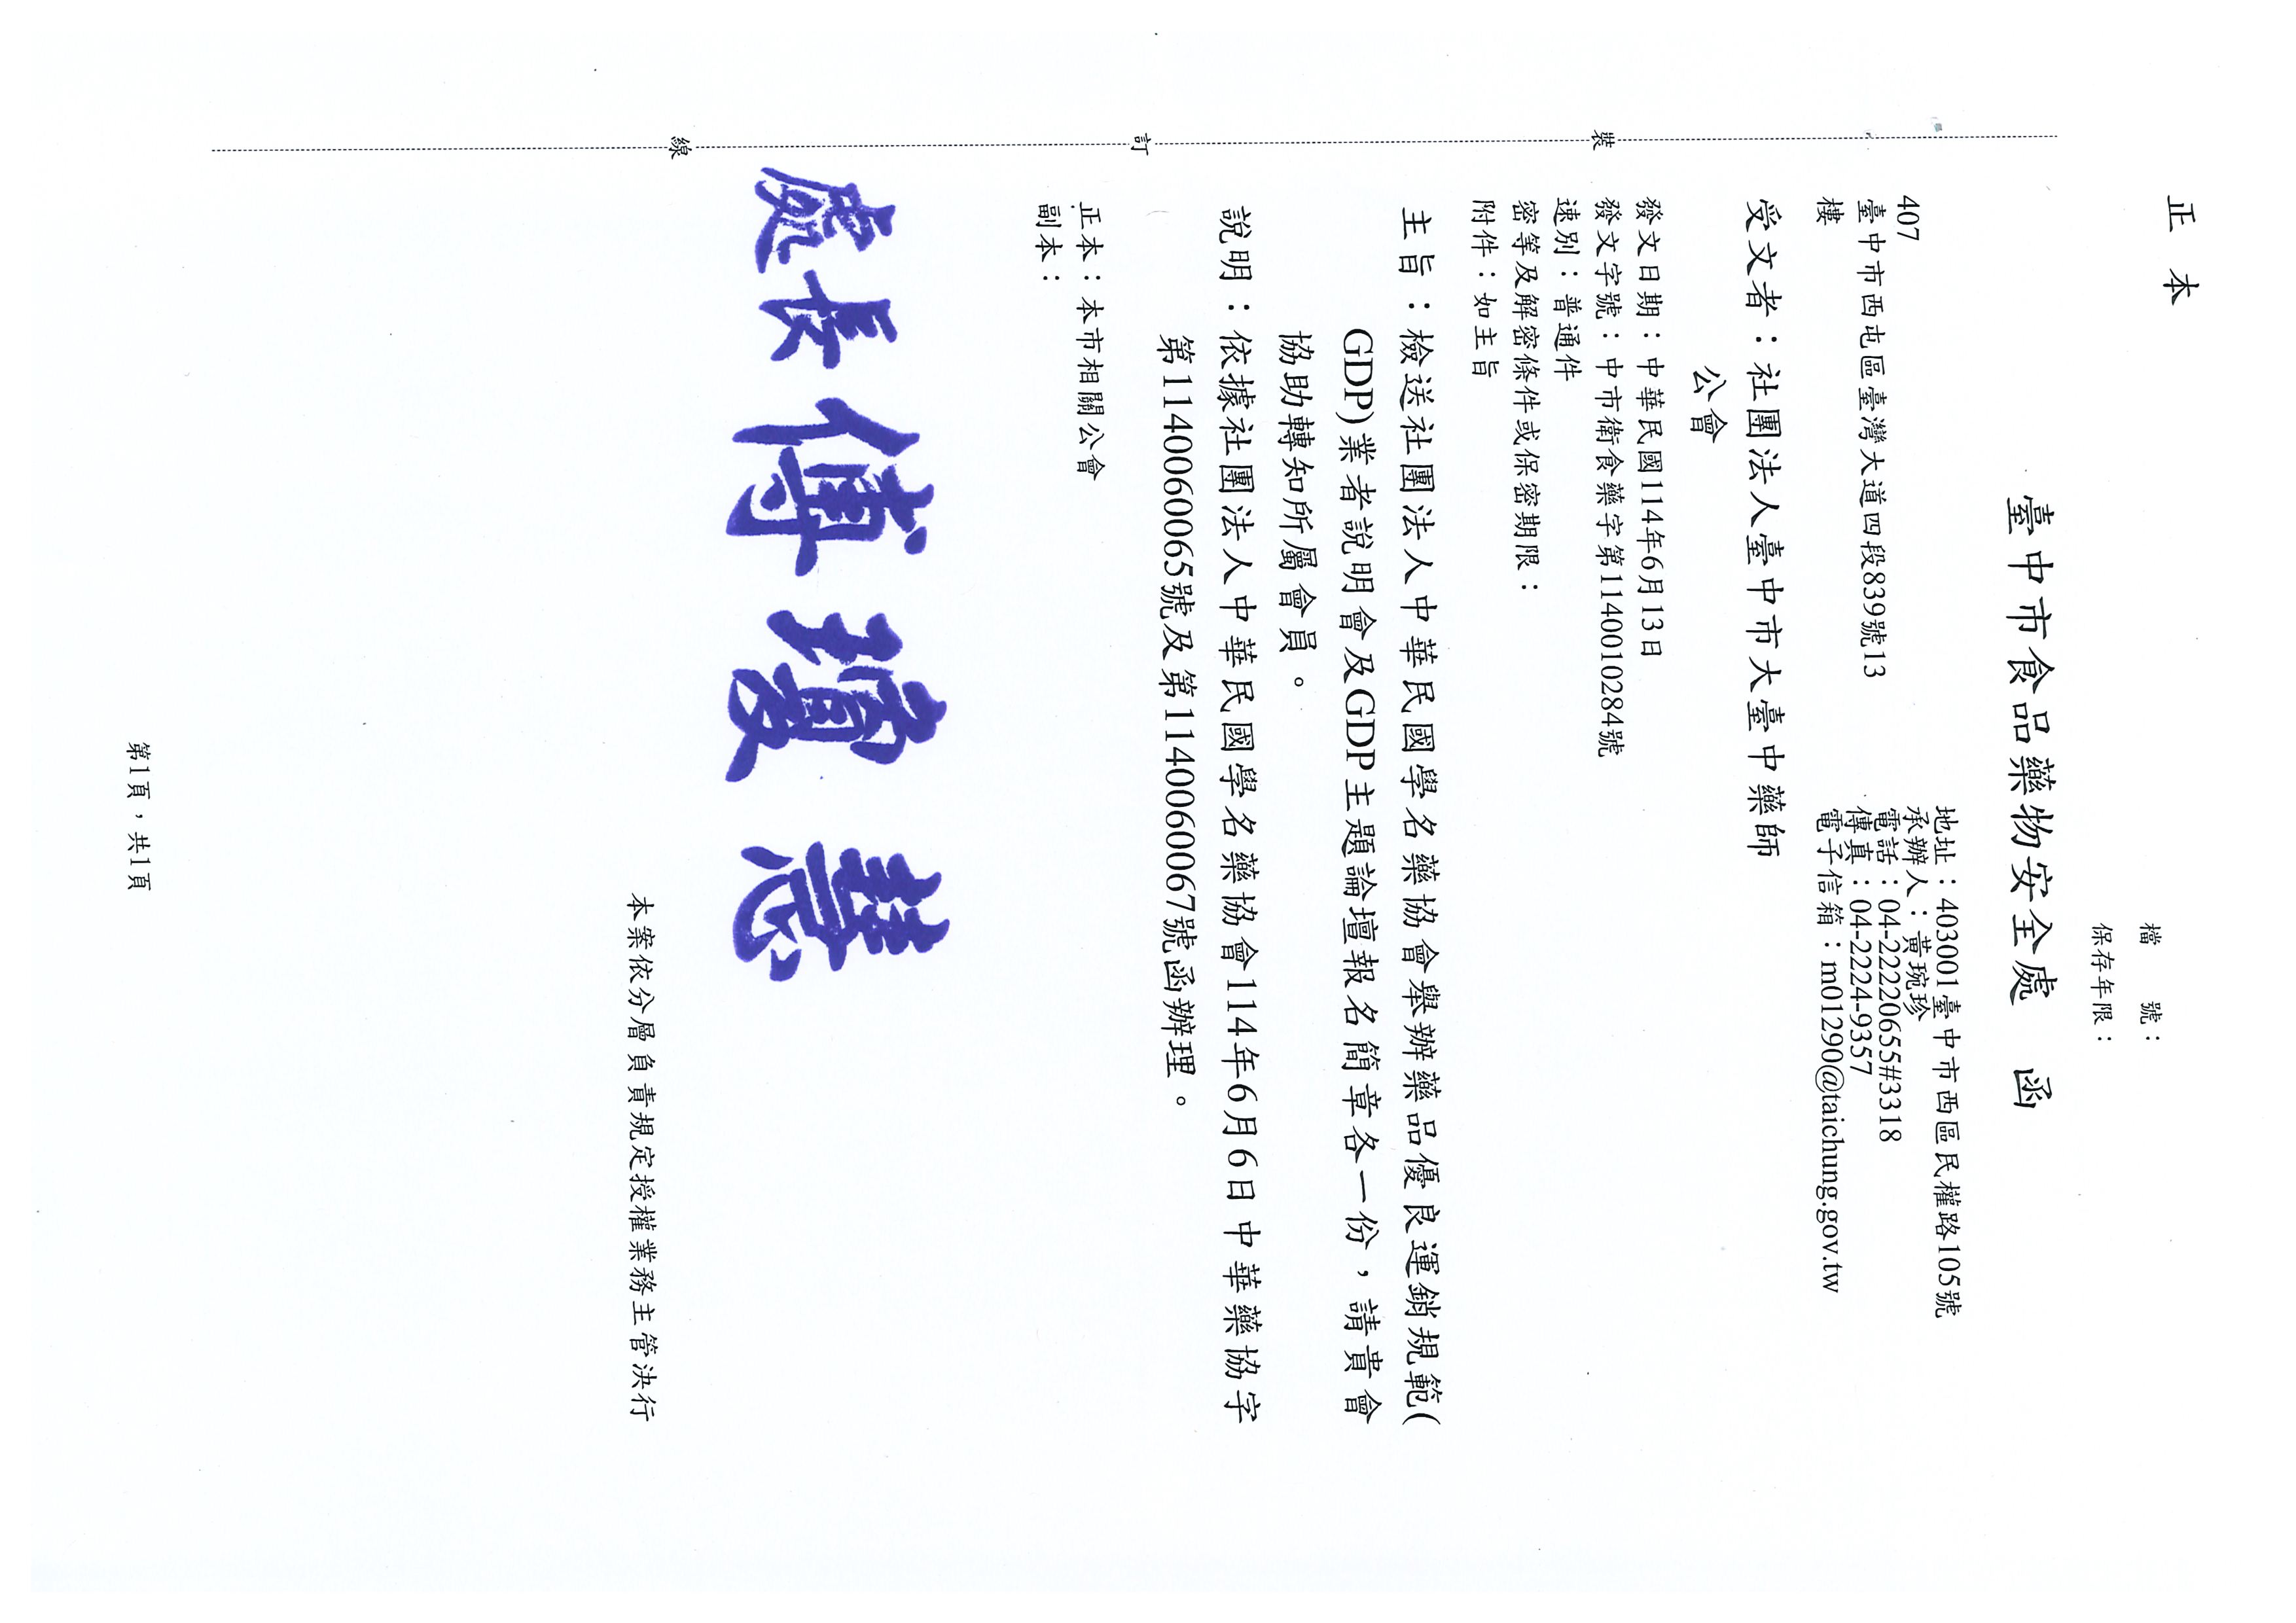 正本
檔　　號：
保存年限：
臺中市食品藥物安全處　函
地址：403001臺中市西區民權路105號
承辦人：黃琬珍
電話：04-22220655#3318
傳真：04-2224-9357
電子信箱：m01290@taichung.gov.tw
407
臺中市西屯區臺灣大道四段839號13
樓
受文者：社團法人臺中市大臺中藥師
公會
發文日期：中華民國114年6月13日
發文字號：中市衛食藥字第1140010284號
速別：普通件
密等及解密條件或保密期限：
附件：如主旨
主旨：檢送社團法人中華民國學名藥協會舉辦藥品優良運銷規範(
GDP)業者說明會及GDP主題論壇報名簡章各一份，請貴會
協助轉知所屬會員。
說明：依據社團法人中華民國學名藥協會114年6月6日中華藥協字
第1140060065號及第1140060067號函辦理。
正本：本市相關公會
副本：
處長傅瓊慧
本案依分層負責規定授權業務主管決行
裝
訂
線
第1頁，共1頁